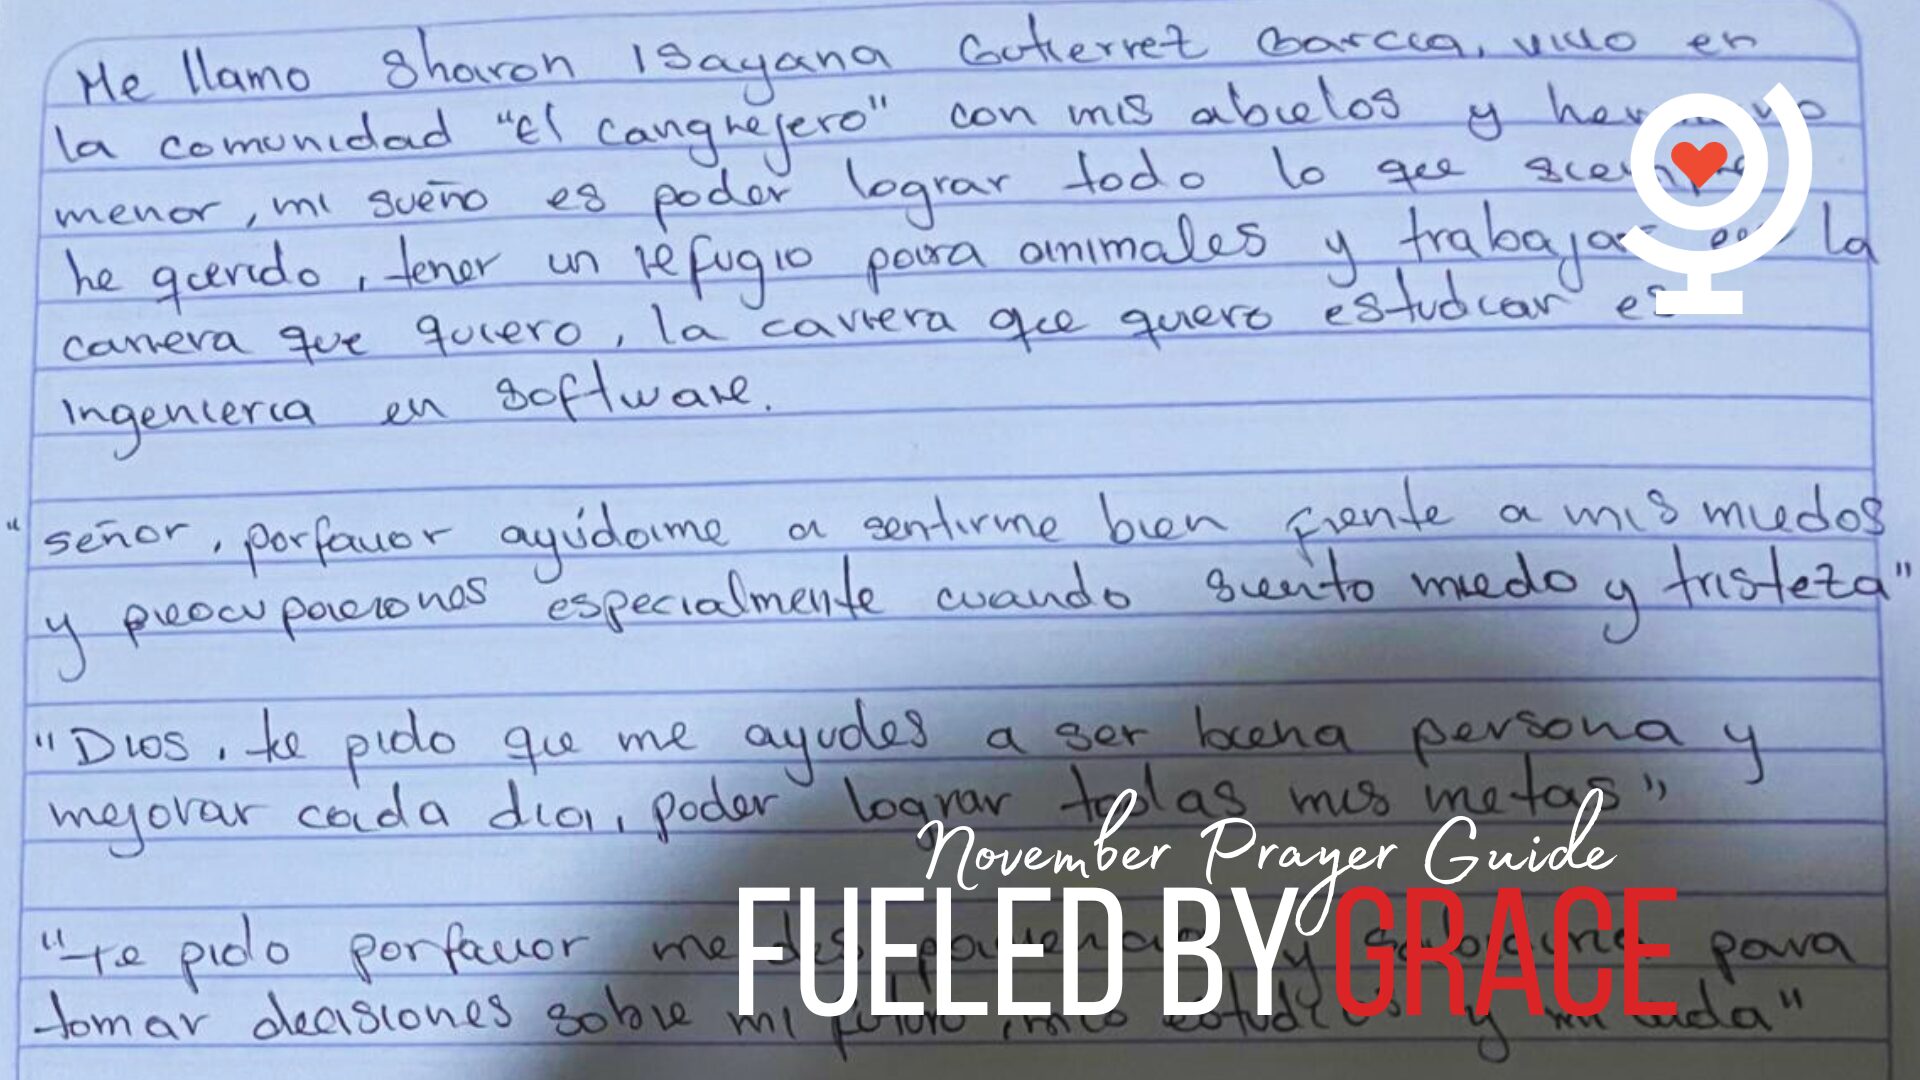 Me llamo Sharon Isayana Gutierrez Garcia, vivo en
la comunidad "El cangrejero" con mis abuelos y
menor, mi sueño es poder lograr todo lo que
he querido, tener un refugio para animales y trabajar en la
carrera que quiero, la carrera que quiero estudiar es
ingenieria en software.
"señor, porfavor ayúdame a sentirme bien frente a mis miedos
y preocupaciones especialmente cuando siento miedo y tristeza"
"Dios, te pido que me ayudes a ser buena persona y
mejorar cada dia, poder lograr todas mis metas"
November Prayer Guide
FUELED BY GRACE
"te pido porfavor me des para
tomar decisiones sobre mi futuro, mis estudios y mi vida"